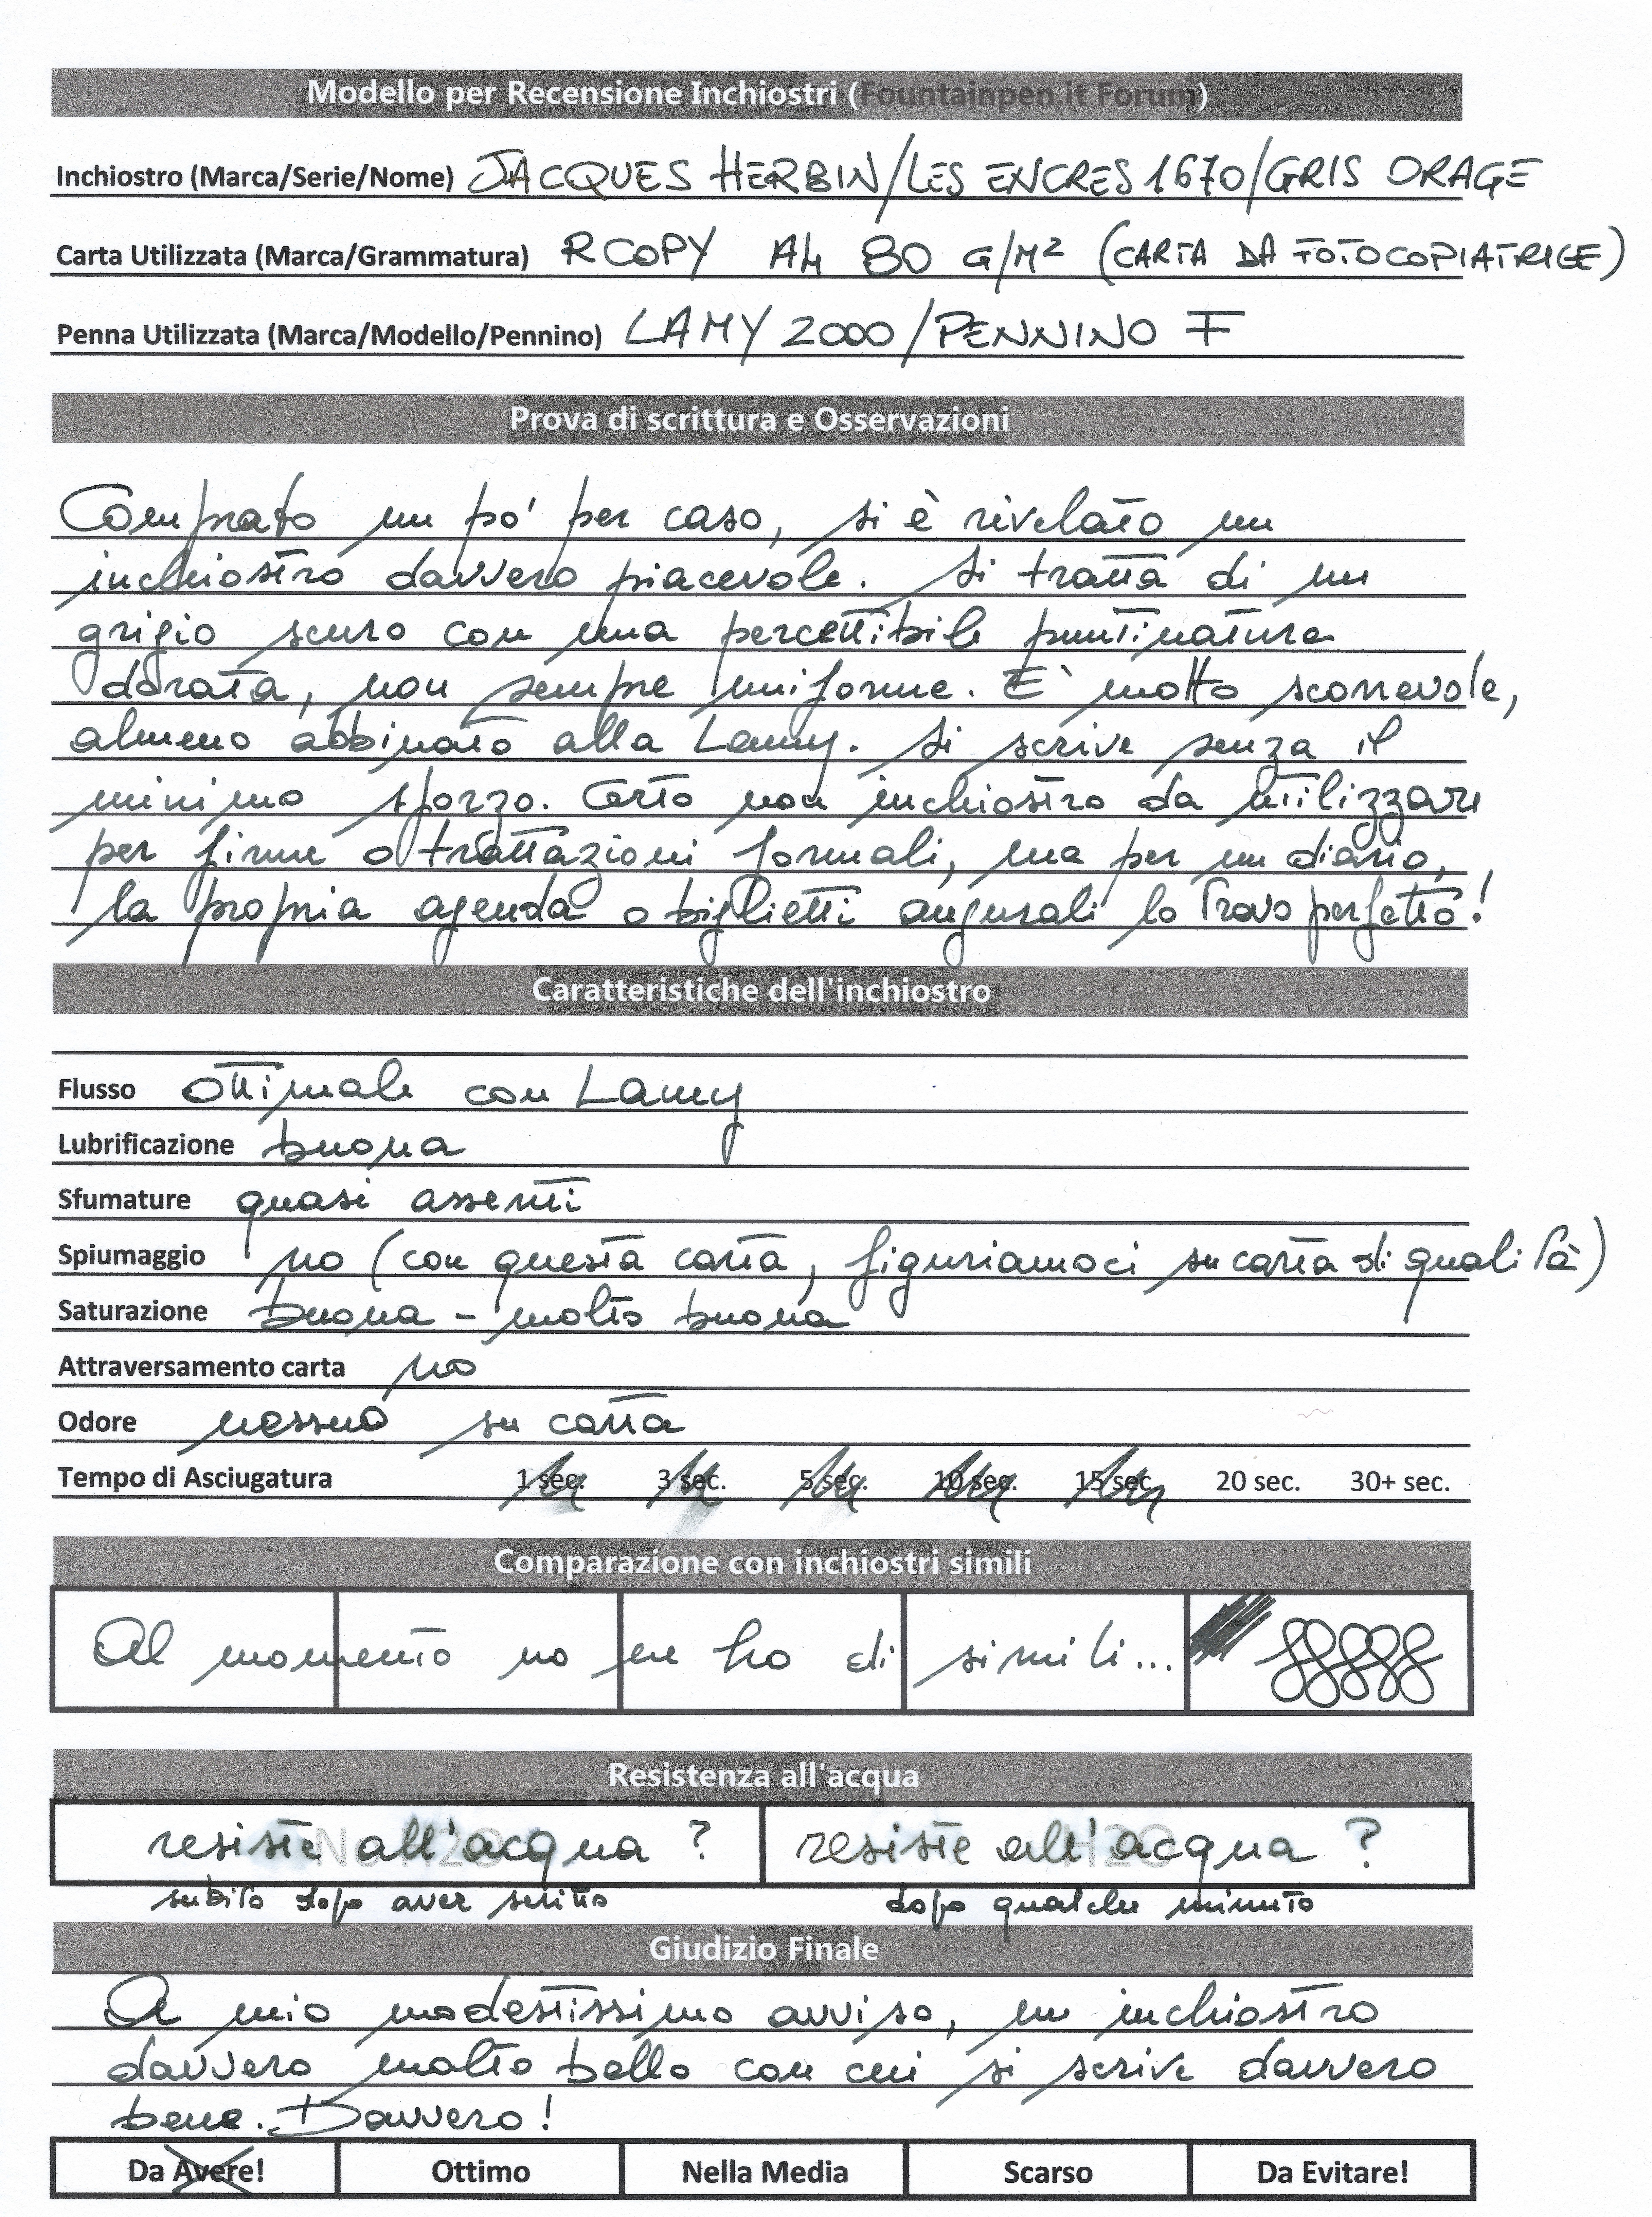 Modello per Recensione Inchiostri (Fountainpen.it Forum)
Inchiostro (Marca/Serie/Nome) JACQUES HERBIN/LES ENCRES 1670/GRIS ORAGE
Carta Utilizzata (Marca/Grammatura) RCOPY A4 80 G/M² (CARTA DA FOTOCOPIATRICE)
Penna Utilizzata (Marca/Modello/Pennino) LAMY 2000/PENNINO F
Prova di scrittura e Osservazioni
Comprato un po' per caso, si è rivelato un
inchiostro davvero piacevole. Si tratta di un
grigio scuro con una percettibile puntinatura
dorata, non sempre uniforme. E' molto scorrevole,
almeno abbinato alla Lamy. Si scrive senza il
minimo sforzo. Certo non inchiostro da utilizzare
per firme o trattazioni formali, ma per un diario,
la propria agenda o biglietti augurali lo trovo perfetto!
Caratteristiche dell'inchiostro
Flusso ottimale con Lamy
Lubrificazione buona
Sfumature quasi assenti
Spiumaggio no (con questa carta, figuriamoci su carta di qualità)
Saturazione buona - molto buona
Attraversamento carta no
Odore nessuno su carta
Tempo di Asciugatura 1 sec. 3 sec. 5 sec. 10 sec. 15 sec. 20 sec. 30+ sec.
Comparazione con inchiostri simili
Al momento no ne ho di simili...
Resistenza all'acqua
resiste all'acqua ? resiste all'acqua ?
No H2O H2O
subito dopo aver scritto dopo qualche minuto
Giudizio Finale
A mio modestissimo avviso, un inchiostro
davvero molto bello con cui si scrive davvero
bene. Davvero!
Da Avere! Ottimo Nella Media Scarso Da Evitare!